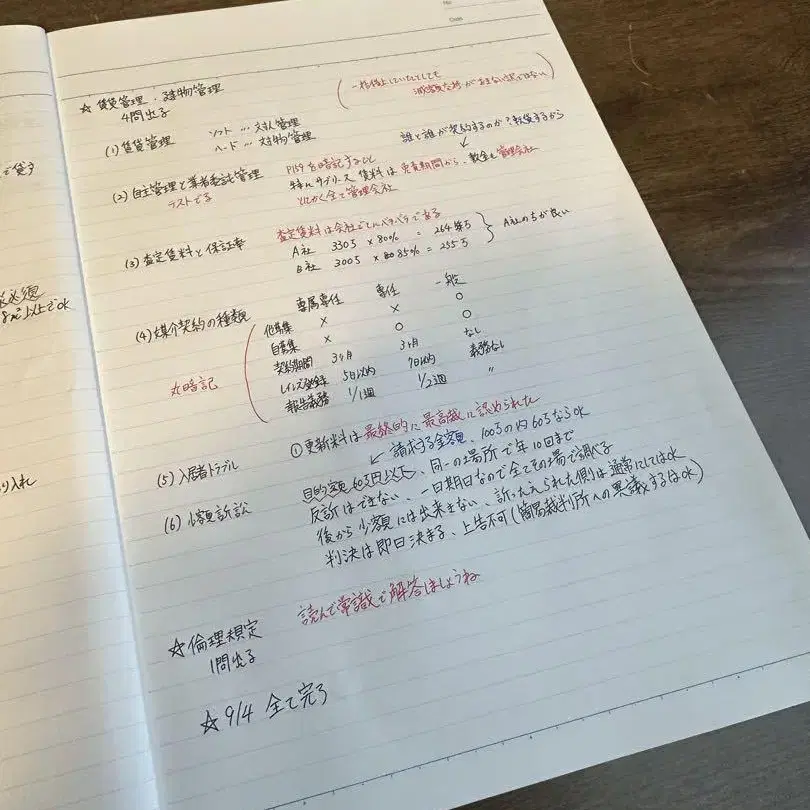 No.
Date
で貸す
必須
8㎡以上でOK
り入れ
☆ 賃貸管理・建物管理
4問出る
減価償却があまい訳ではない
(1) 賃貸管理
ソフト … 対人管理
ハード … 対物管理
誰と誰が契約するのか？転貸するから
(2) 自主管理と業者委託管理
テストでる
P159を暗記すること
特にサブリース 賃料は免責期間から、敷金も管理会社
とにかく全て管理会社
(3) 査定賃料と保証率
査定賃料は会社でてんでバラバラである
A社 330万 × 80% = 264万
B社 300万 × 85% = 255万
A社の方が良い
(4) 媒介契約の種類
丸暗記
専属専任 専任 一般
他募集 × × ○
自募集 × ○ ○
契約期間 3ヶ月 3ヶ月 なし
レインズ登録 5日以内 7日以内 義務なし
報告義務 1/1週 1/2週 〃
(5) 入居者トラブル
①更新料は最終的に最高裁に認められた
請求する金額、100万の内60万ならOK
(6) 少額訴訟
目的額60万円以下、同一の場所で年10回まで
反訴はできない、一日期日なので全てその場で調べる
後から少額には出来ない、訴えられた側は通常にしてはOK
判決は即日決まる、上告不可(簡易裁判所への異議するはOK)
☆倫理規定
1問出る
読んで常識で解答しましょうね
☆9/4 全て完了